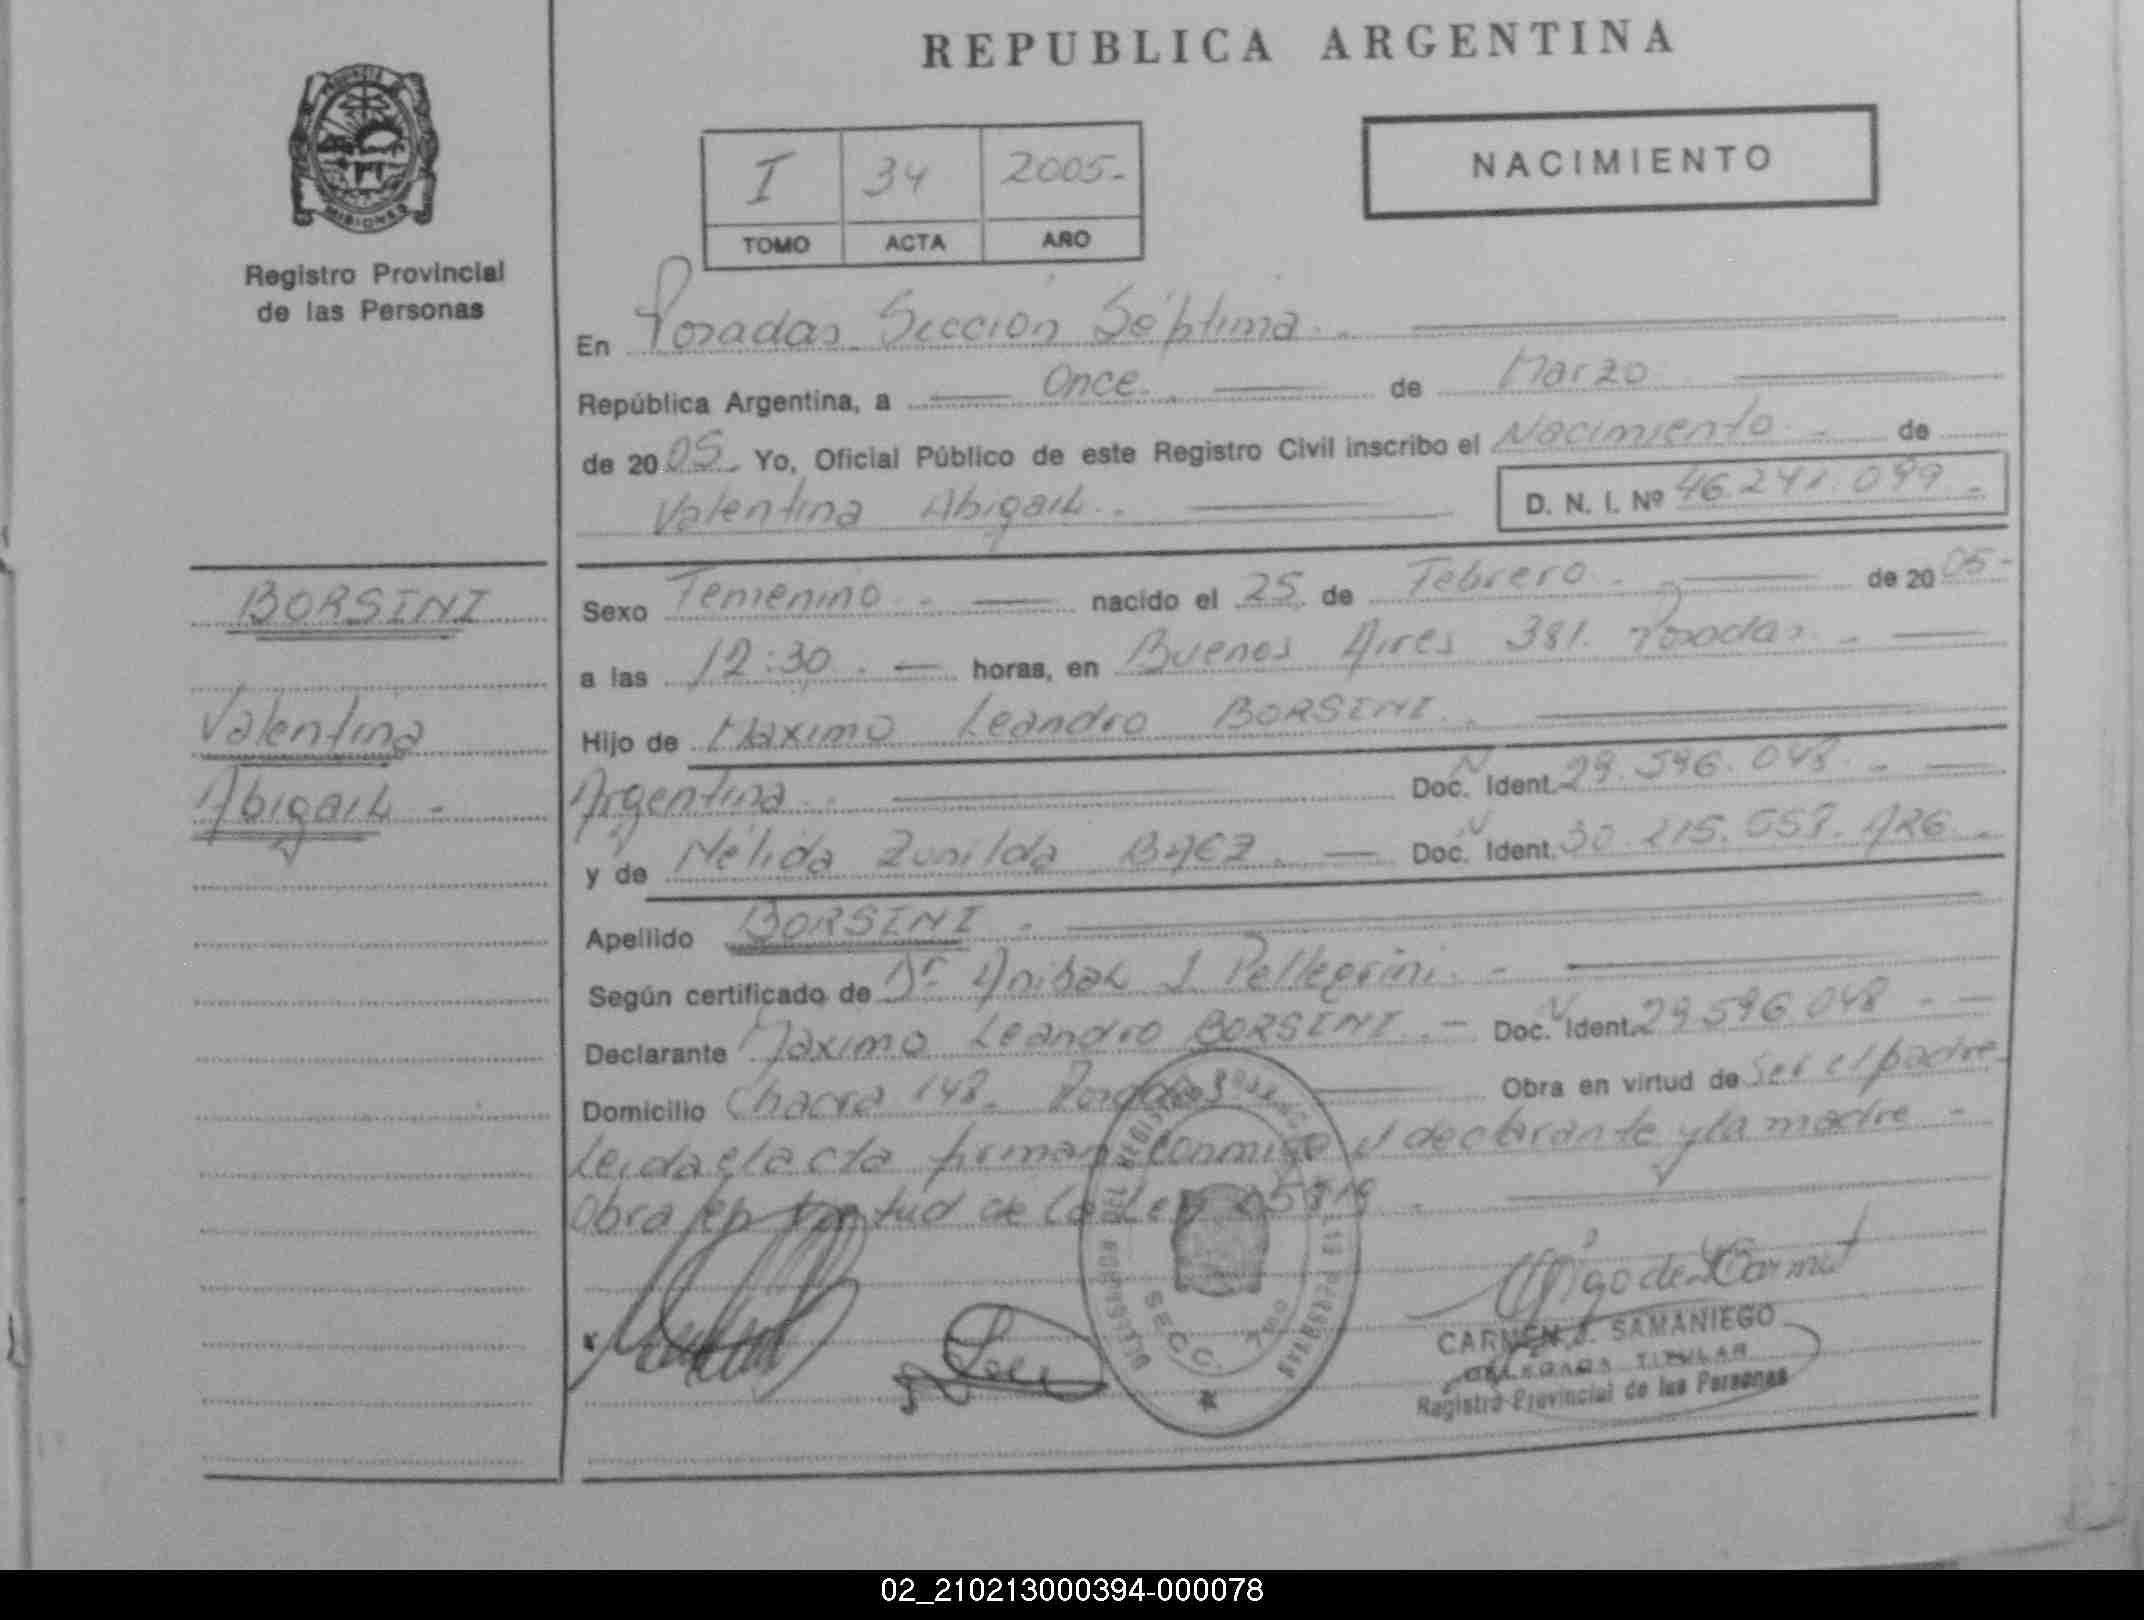 REPUBLICA ARGENTINA
NACIMIENTO
I 34 2005-
TOMO ACTA AÑO
MISIONES
Registro Provincial
de las Personas
En Posadas Sección Séptima.-
República Argentina, a Once. de Marzo
de 2005. Yo, Oficial Público de este Registro Civil inscribo el Nacimiento.- de
Valentina Abigail.-
D. N. I. Nº 46.241.099-
BORSINI
Valentina
Abigail-
Sexo Femenino.- nacido el 25 de Febrero.- de 2005-
a las 12:30.- horas, en Buenos Aires 381. Posadas.-
Hijo de Maximo Leandro BORSINI.-
Argentina.- Doc. N Ident. 29.596.048.-
y de Nélida Zunilda BAEZ.- Doc. N Ident. 30.215.557. ARG.-
Apellido BORSINI.-
Según certificado de Dr Anibal J Pellegrini.-
Declarante Maximo Leandro BORSINI.- Doc. N Ident. 29.596.048.-
Domicilio Chacra 148. Posadas Obra en virtud de Ser el padre-
Leida el acta firman conmigo el declarante y la madre-
Obra en virtud de la Ley
SECC. 7ma
CARMEN J. SAMANIEGO
DELEGADA TITULAR
Registro Provincial de las Personas
02_210213000394-000078